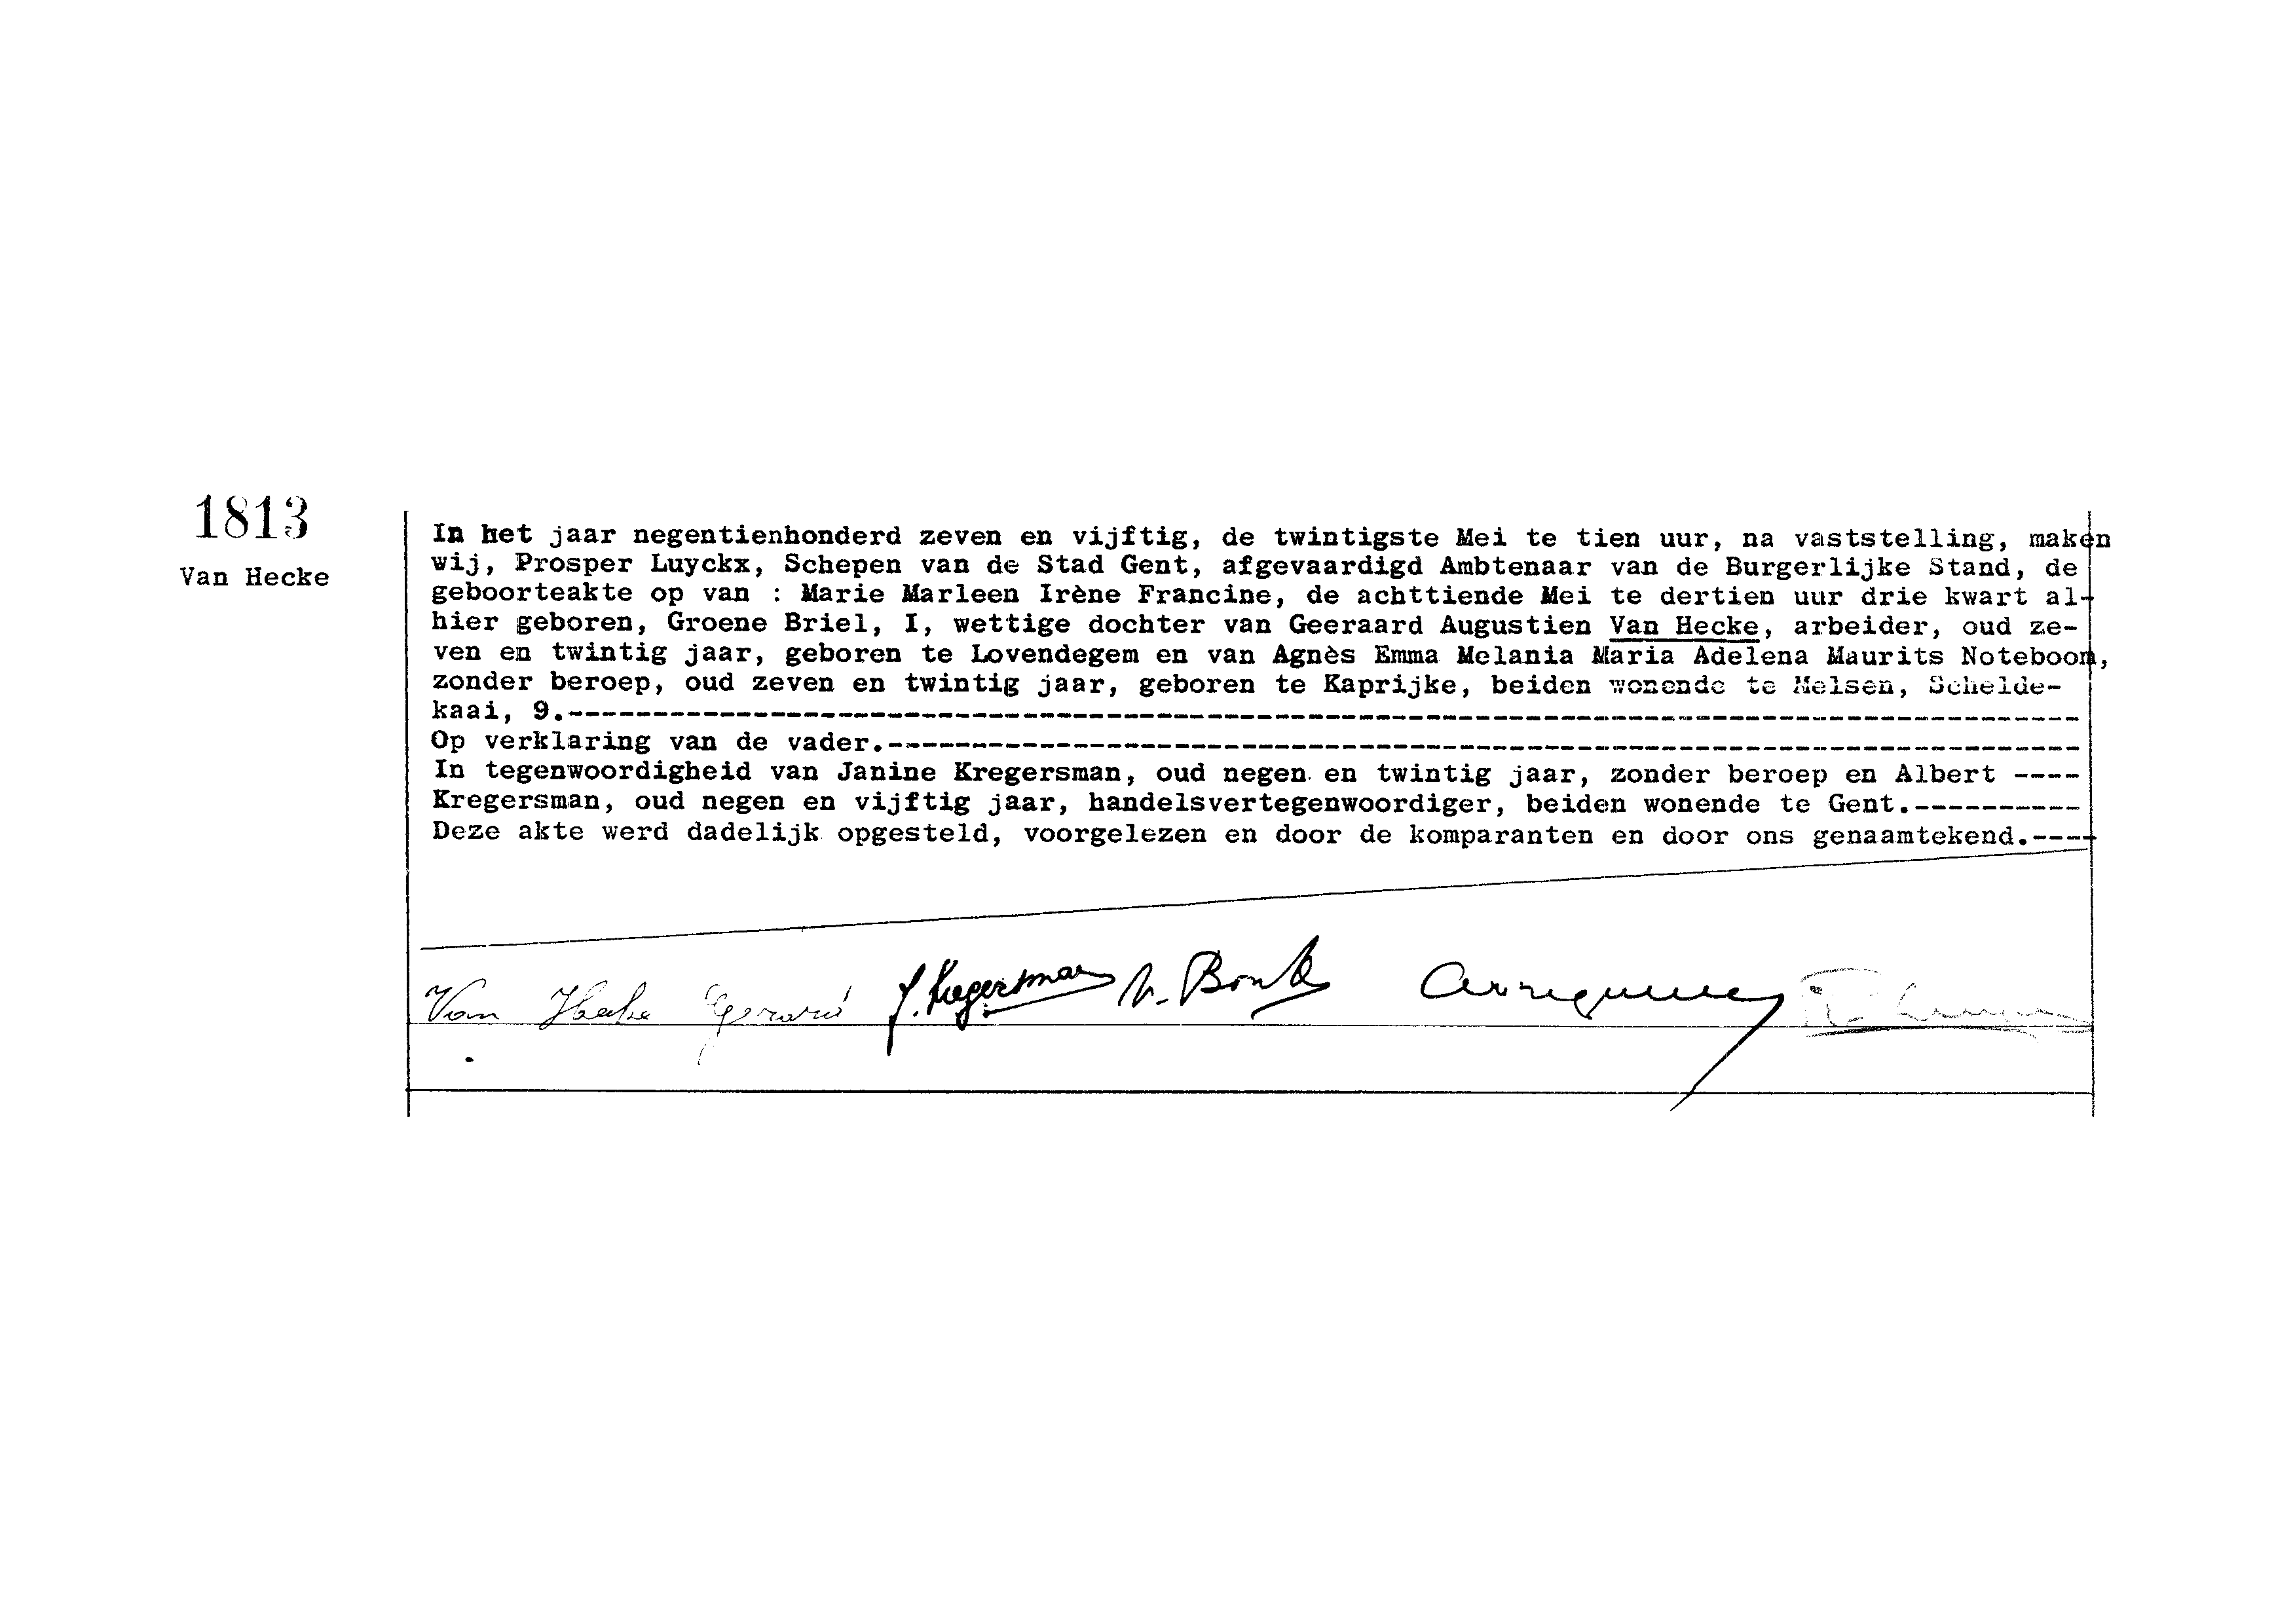 1813
Van Hecke
In het jaar negentienhonderd zeven en vijftig, de twintigste Mei te tien uur, na vaststelling, maken
wij, Prosper Luyckx, Schepen van de Stad Gent, afgevaardigd Ambtenaar van de Burgerlijke Stand, de
geboorteakte op van : Marie Marleen Irène Francine, de achttiende Mei te dertien uur drie kwart al-
hier geboren, Groene Briel, I, wettige dochter van Geeraard Augustien Van Hecke, arbeider, oud ze-
ven en twintig jaar, geboren te Lovendegem en van Agnès Emma Melania Maria Adelena Maurits Noteboom,
zonder beroep, oud zeven en twintig jaar, geboren te Kaprijke, beiden wonende te Melsen, Schelde-
kaai, 9.----------
Op verklaring van de vader.----------
In tegenwoordigheid van Janine Kregersman, oud negen en twintig jaar, zonder beroep en Albert ----
Kregersman, oud negen en vijftig jaar, handelsvertegenwoordiger, beiden wonende te Gent.----------
Deze akte werd dadelijk opgesteld, voorgelezen en door de komparanten en door ons genaamtekend.----
Van Hecke Gerard J. Kregersman